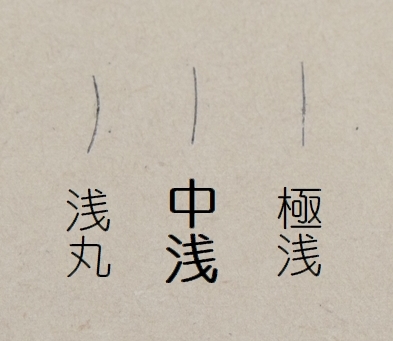 浅丸
中浅
極浅